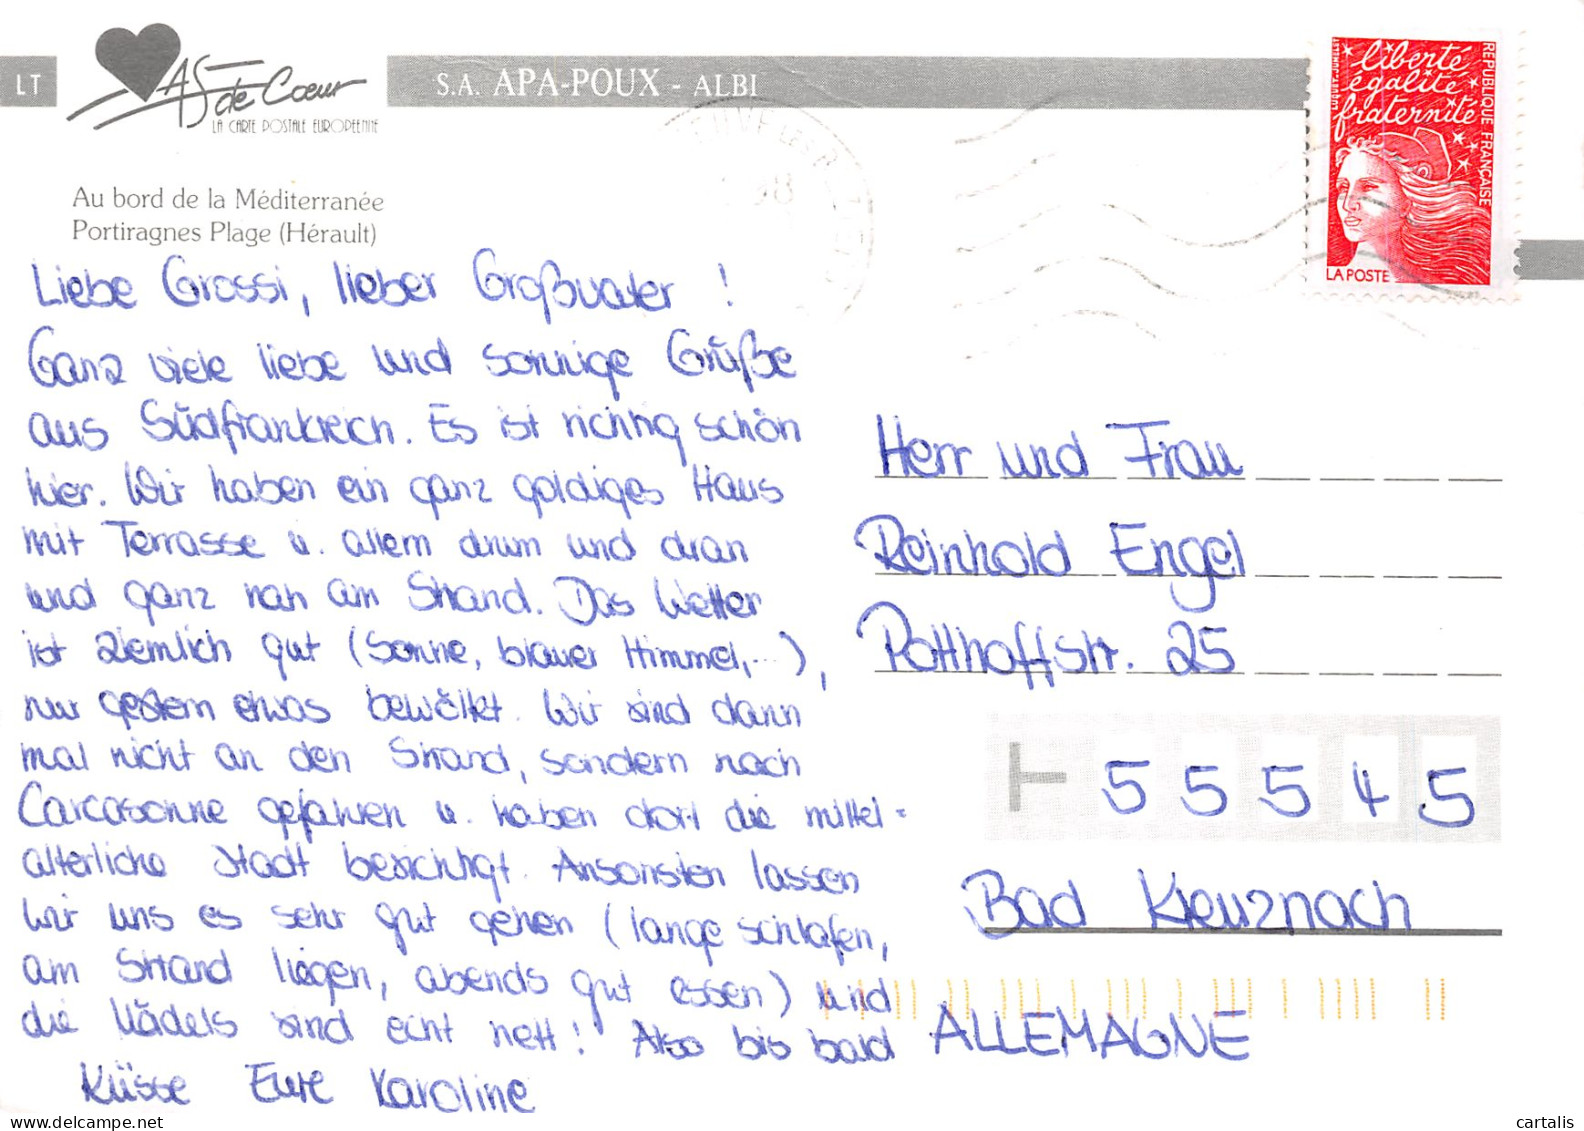 LT
AS de Cœur
LA CARTE POSTALE EUROPÉENNE
S.A. APA-POUX - ALBI
Au bord de la Méditerranée
Portiragnes Plage (Hérault)
98
liberté
égalité
fraternité
RÉPUBLIQUE FRANÇAISE
LA POSTE
Liebe Grossi, lieber Großvater !
Ganz viele liebe und sonnige Grüße
aus Südfrankreich. Es ist richtig schön
hier. Wir haben ein ganz goldiges Haus
mit Terrasse u. allem drum und dran
und ganz nah am Strand. Das Wetter
ist ziemlich gut (Sonne, blauer Himmel,...),
nur gestern etwas bewölkt. Wir sind dann
mal nicht an den Strand, sondern nach
Carcasonne gefahren u. haben dort die mittel=
alterliche Stadt besichtigt. Ansonsten lassen
wir uns es sehr gut gehen (lange schlafen,
am Strand liegen, abends gut essen) und
die Mädels sind echt nett! Also bis bald
Küsse Eure Karoline
Herr und Frau
Reinhold Engel
Potthoffstr. 25
55545
Bad Kreuznach
ALLEMAGNE
delcampe.net
cartalis